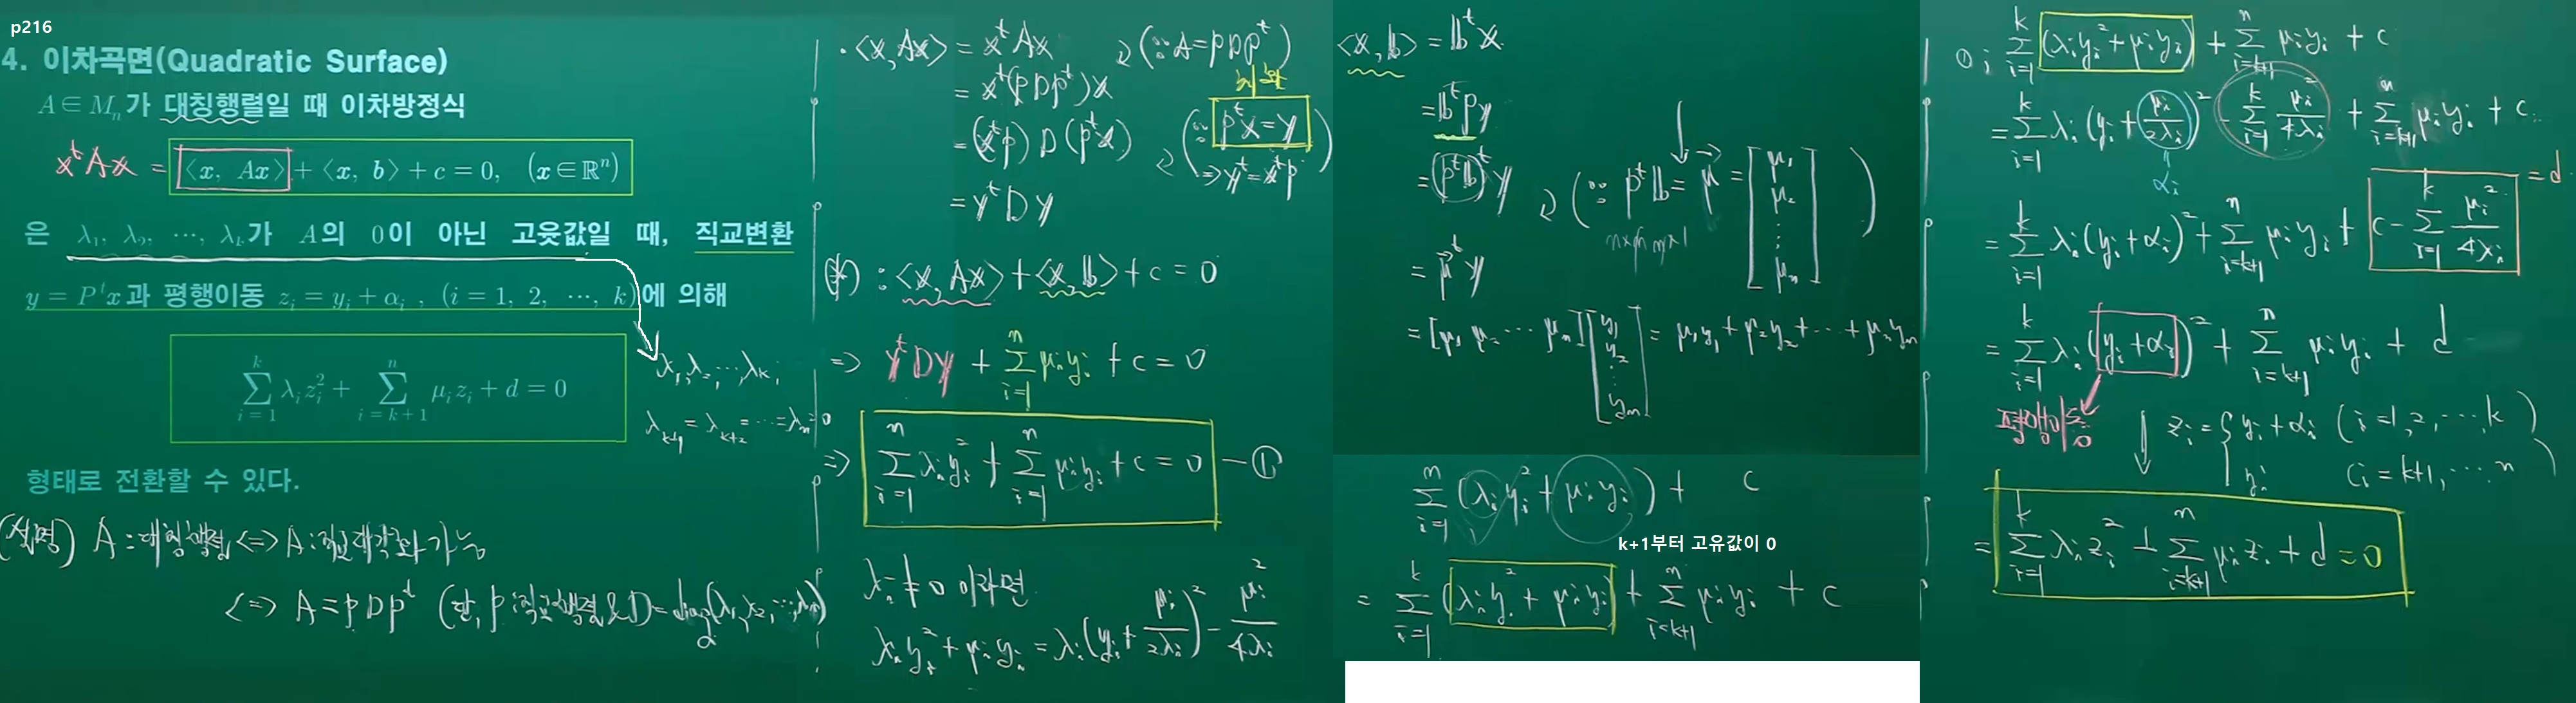 p216
4. 이차곡면(Quadratic Surface)
A∈Mₙ가 대칭행렬일 때 이차방정식
xᵗAx = ⟨x, Ax⟩ + ⟨x, b⟩ + c = 0, (x∈ℝⁿ)
은 λ₁, λ₂, ⋯, λₖ가 A의 0이 아닌 고윳값일 때, 직교변환
y = Pᵗx과 평행이동 zᵢ = yᵢ + αᵢ , (i = 1, 2, ⋯, k)에 의해
∑_{i=1}^{k} λᵢzᵢ² + ∑_{i=k+1}^{n} μᵢzᵢ + d = 0
λ₁, λ₂, ⋯, λₖ,
λₖ₊₁ = λₖ₊₂ = ⋯ = λₙ = 0
형태로 전환할 수 있다.
(설명) A : 대칭행렬 ⟺ A : 직교대각화 가능
⟺ A = PDPᵗ (단, P : 직교행렬 & D = diag(λ₁, λ₂, ⋯, λₙ))
· ⟨x, Ax⟩ = xᵗAx (∵ A = PDPᵗ)
= xᵗ(PDPᵗ)x
= (xᵗP) D (Pᵗx) (∵ Pᵗx = y ⇒ yᵗ = xᵗP)
= yᵗDy
(*) : ⟨x, Ax⟩ + ⟨x, b⟩ + c = 0
⇒ yᵗDy + ∑_{i=1}^{n} μᵢyᵢ + c = 0
⇒ ∑_{i=1}^{n} λᵢyᵢ² + ∑_{i=1}^{n} μᵢyᵢ + c = 0 — ①
λᵢ ≠ 0 이라면
λᵢyᵢ² + μᵢyᵢ = λᵢ(yᵢ + μᵢ/2λᵢ)² − μᵢ²/4λᵢ
⟨x, b⟩ = bᵗx
= bᵗPy
= (Pᵗb)ᵗy (∵ Pᵗb = μ⃗ = [μ₁ μ₂ ⋮ μₙ])
n×n n×1
= μ⃗ᵗy
= [μ₁ μ₂ ⋯ μₙ][y₁ y₂ ⋮ yₙ] = μ₁y₁ + μ₂y₂ + ⋯ + μₙyₙ
∑_{i=1}^{n} (λᵢyᵢ² + μᵢyᵢ) + c
k+1부터 고유값이 0
= ∑_{i=1}^{k} (λᵢyᵢ² + μᵢyᵢ) + ∑_{i=k+1}^{n} μᵢyᵢ + c
①; ∑_{i=1}^{k} (λᵢyᵢ² + μᵢyᵢ) + ∑_{i=k+1}^{n} μᵢyᵢ + c
= ∑_{i=1}^{k} λᵢ(yᵢ + μᵢ/2λᵢ)² − ∑_{i=1}^{k} μᵢ²/4λᵢ + ∑_{i=k+1}^{n} μᵢyᵢ + c
αᵢ
= ∑_{i=1}^{k} λᵢ(yᵢ + αᵢ)² + ∑_{i=k+1}^{n} μᵢyᵢ + c − ∑_{i=1}^{k} μᵢ²/4λᵢ = d
= ∑_{i=1}^{k} λᵢ(yᵢ + αᵢ)² + ∑_{i=k+1}^{n} μᵢyᵢ + d
평행이동
↓ zᵢ = { yᵢ + αᵢ (i = 1, 2, ⋯, k)
yᵢ (i = k+1, ⋯ n)
= ∑_{i=1}^{k} λᵢzᵢ² + ∑_{i=k+1}^{n} μᵢzᵢ + d = 0